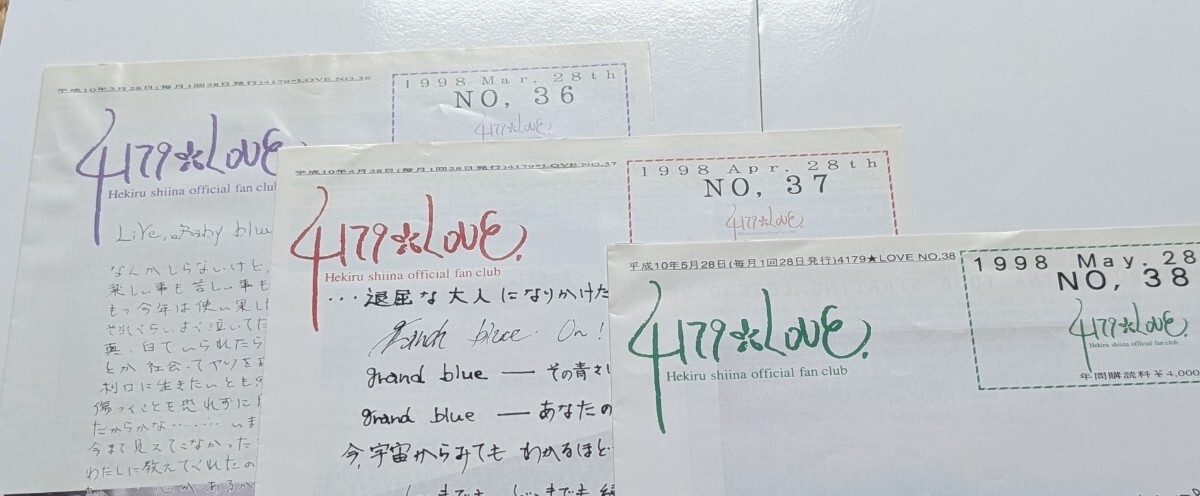 平成10年3月28日(毎月1回28日発行)4179★LOVE NO.36
1998 Mar. 28th
NO, 36
4179★LOVE.
4179★LOVE.
Hekiru shiina official fan clu
Live, Baby blue
なんかしらないけと、
楽しい事も苦しい事も
もっ今年は使い果し
それぐらいよく泣いてた
真 白でいられたら
とか社会ってヤツを
利口に生きたいとも
傷つくことを恐れずに
だからかな………いま
今まで見えてこなかった
わたしに教えてくれたの
平成10年4月28日(毎月1回28日発行)4179★LOVE NO.37
1998 Apr. 28th
NO, 37
4179★LOVE.
4179★LOVE.
Hekiru shiina official fan club
…退屈な大人になりかけた
grand blue On!
grand blue — その青さ
grand blue — あなたの
今、宇宙からみても わかるほど
平成10年5月28日(毎月1回28日発行)4179★LOVE NO.38
1998 May. 28
NO, 38
4179★LOVE.
4179★LOVE.
Hekiru shiina official fan club
Hekiru shiina official fan club
年間購読料¥4,000